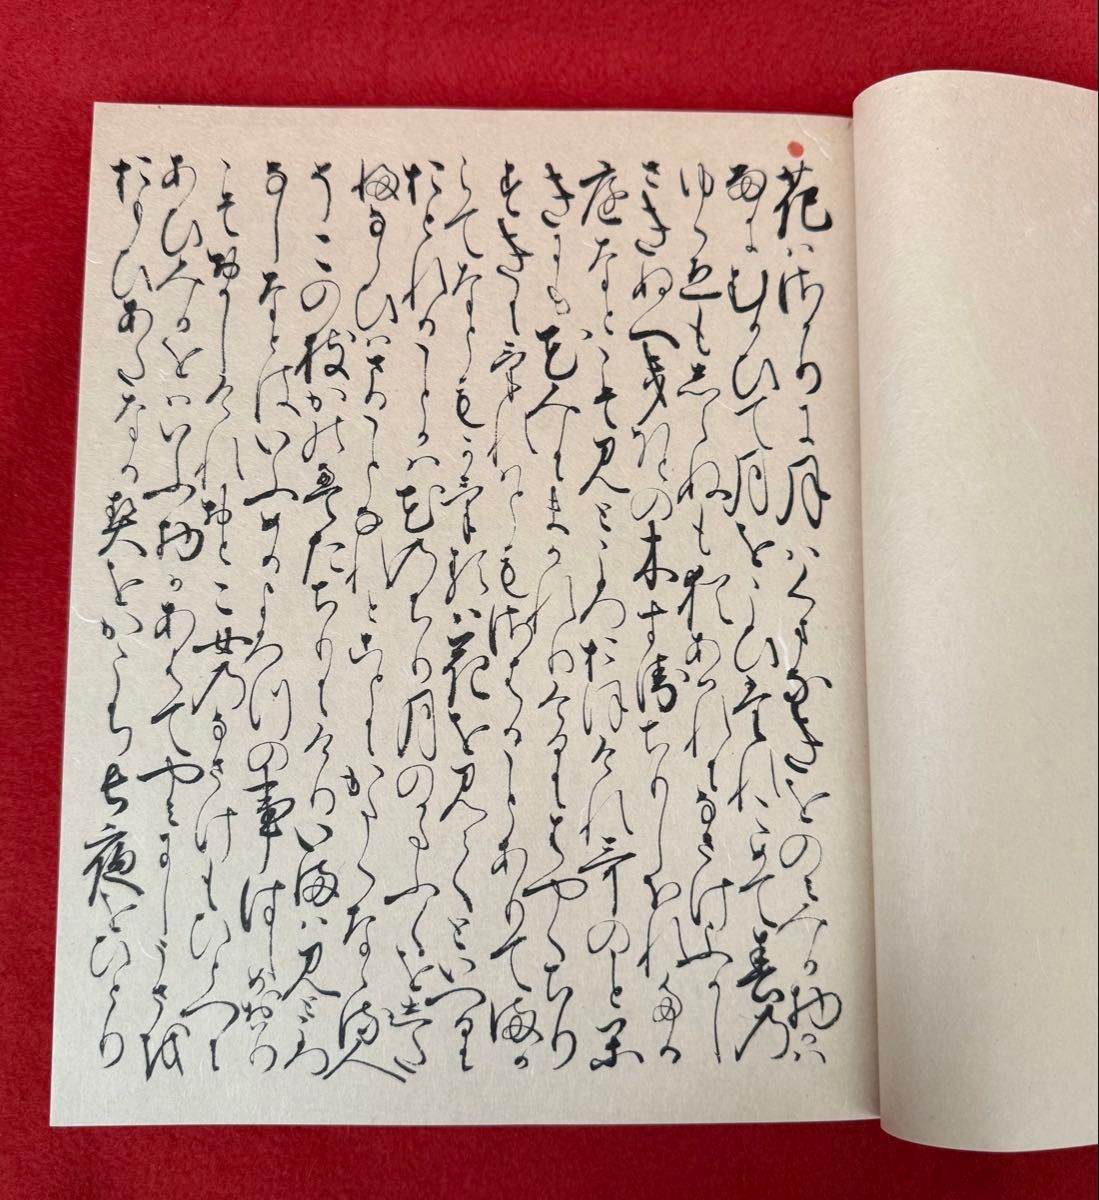 花はさかりに月はくまなきをのみみる物かは
雨にむかひて月をこひたれこめて春の
ゆくゑもしらぬも猶あはれになさけふかし
さきぬへきほとの木すゑちりしをれたる
庭なとこそ見ところおほけれ哥のこと葉
かきにも花みにまかれりけるにはやくちり
すきにけれはともさはることありてまか
らてなともかけるは花を見てといへるに
おとれることかは花のちり月のかたふくをした
ふならひはさることなれとことにかたくななる人
そこの枝かの枝ちりにけりいまは見ところ
なしなとはいふめるよろつの事はしめおはり
こそおかしけれおとこ女のなさけもひとへに
あひみるをはいふ物かあはてやみにしうさを
おもひあたなる契をかこち長夜をひとり